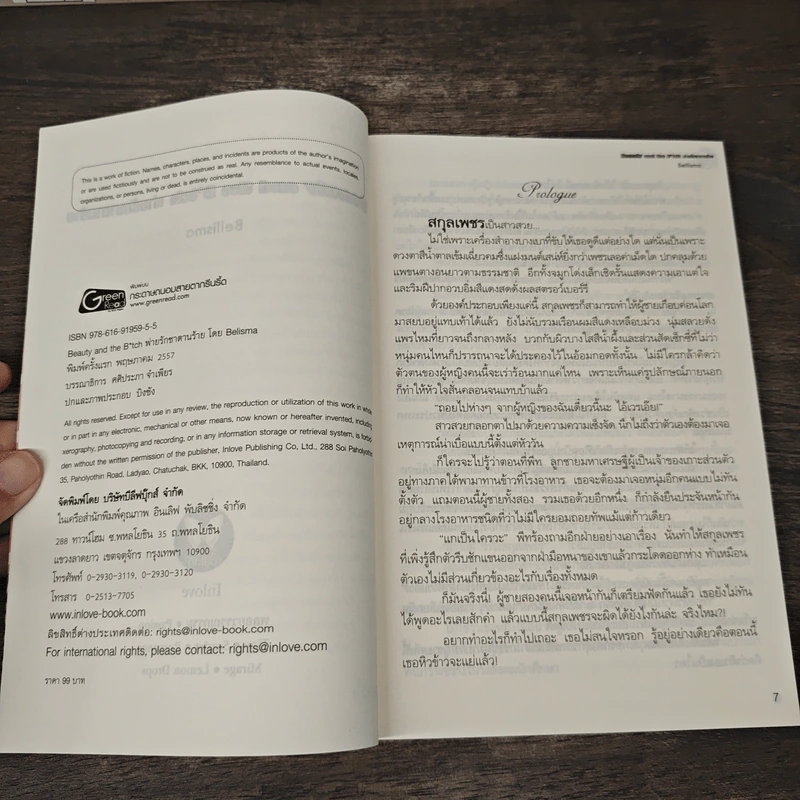 This is a work of fiction. Names, characters, places, and incidents are products of the author's imagination
or are used fictitiously and are not to be construed as real. Any resemblance to actual events, locales,
organizations, or persons, living or dead, is entirely coincidental.
Green Read
พิมพ์บน
กระดาษถนอมสายตากรีนรี้ด
www.greenread.com
ISBN 978-616-91959-5-5
Beauty and the B*tch พ่ายรักซาตานร้าย โดย Belisma
พิมพ์ครั้งแรก พฤษภาคม 2557
บรรณาธิการ ศศิประภา จำเพียร
ปกและภาพประกอบ ปิงซัง
All rights reserved. Except for use in any review, the reproduction or utilization of this work in whole
or in part in any electronic, mechanical or other means, now known or hereafter invented, including
xerography, photocopying and recording, or in any information storage or retrieval system, is forbid-
den without the written permission of the publisher, Inlove Publishing Co, Ltd., 288 Soi Paholyothin
35, Paholyothin Road, Ladyao, Chatuchak, BKK, 10900, Thailand.
จัดพิมพ์โดย บริษัทบีลีฟบุ๊กส์ จำกัด
ในเครือสำนักพิมพ์คุณภาพ อินเลิฟ พับลิชชิ่ง จำกัด
288 ทาวน์โฮม ซ.พหลโยธิน 35 ถ.พหลโยธิน
แขวงลาดยาว เขตจตุจักร กรุงเทพฯ 10900
โทรศัพท์ 0-2930-3119, 0-2930-3120
โทรสาร 0-2513-7705
www.inlove-book.com
ลิขสิทธิ์ต่างประเทศติดต่อ: rights@inlove-book.com
For international rights, please contact: rights@inlove.com
ราคา 99 บาท
Beauty and the B*tch
Bellisma
Prologue
สกุลเพชรเป็นสาวสวย...
ไม่ใช่เพราะเครื่องสำอางบางเบาที่ขับให้เธอดูดีแต่อย่างใด แต่นั่นเป็นเพราะ
ดวงตาสีน้ำตาลเข้มเฉี่ยวคมซึ่งแฝงมนต์เสน่ห์ยิ่งกว่าเพชรเลอค่าเม็ดใด ปกคลุมด้วย
แพขนตางอนยาวตามธรรมชาติ อีกทั้งจมูกโด่งเล็กเชิดรั้นแสดงความเอาแต่ใจ
และริมฝีปากอวบอิ่มสีแดงสดดั่งผลสตรอว์เบอร์รี
ด้วยองค์ประกอบเพียงแค่นี้ สกุลเพชรก็สามารถทำให้ผู้ชายเกือบค่อนโลก
มาสยบอยู่แทบเท้าได้แล้ว ยังไม่นับรวมเรือนผมสีแดงเหลือบม่วง นุ่มสลวยดั่ง
แพรไหมที่ยาวจนถึงกลางหลัง บวกกับผิวบางใสสีน้ำผึ้งและส่วนสัดเซ็กซี่ที่ไม่ว่า
หนุ่มคนไหนก็ปรารถนาจะได้ประคองไว้ในอ้อมกอดทั้งนั้น ไม่มีใครกล้าคิดว่า
ตัวตนของผู้หญิงคนนี้จะเร่าร้อนมากแค่ไหน เพราะเห็นแค่รูปลักษณ์ภายนอก
ก็ทำให้หัวใจสั่นคลอนจนแทบบ้าแล้ว
"ถอยไปห่างๆ จากผู้หญิงของฉันเดี๋ยวนี้นะ ไอ้เวรเอ๊ย!"
สาวสวยกลอกตาไปมาด้วยความความเซ็งจัด นึกไม่ถึงว่าตัวเองต้องมาเจอ
เหตุการณ์น่าเบื่อแบบนี้ตั้งแต่หัววัน
ก็ใครจะไปรู้ว่าตอนที่พีท ลูกชายมหาเศรษฐีผู้เป็นเจ้าของเกาะส่วนตัว
อยู่ทางภาคใต้พามาทานข้าวที่โรงอาหาร เธอจะต้องมาเจอหนุ่มอีกคนแบบไม่ทัน
ตั้งตัว แถมตอนนี้ผู้ชายทั้งสอง รวมเธอด้วยอีกหนึ่ง ก็กำลังยืนประจันหน้ากัน
อยู่กลางโรงอาหารชนิดที่ว่าไม่มีใครยอมถอยทัพแม้แต่ก้าวเดียว
"แกเป็นใครวะ" พีทร้องถามอีกฝ่ายอย่างเอาเรื่อง นั่นทำให้สกุลเพชร
ที่เพิ่งรู้สึกตัวรีบชักแขนออกจากฝ่ามือหนาของเขาแล้วกระโดดออกห่าง ทำเหมือน
ตัวเองไม่มีส่วนเกี่ยวข้องอะไรกับเรื่องทั้งหมด
ก็มันจริงนี่! ผู้ชายสองคนนี้เจอหน้ากันก็เตรียมฟัดกันแล้ว เธอยังไม่ทัน
ได้พูดอะไรเลยสักคำ แล้วแบบนี้สกุลเพชรจะผิดได้ยังไงกันล่ะ จริงไหม?!
อยากทำอะไรก็ทำไปเถอะ เธอไม่สนใจหรอก รู้อยู่อย่างเดียวคือตอนนี้
เธอหิวข้าวจะแย่แล้ว!
7